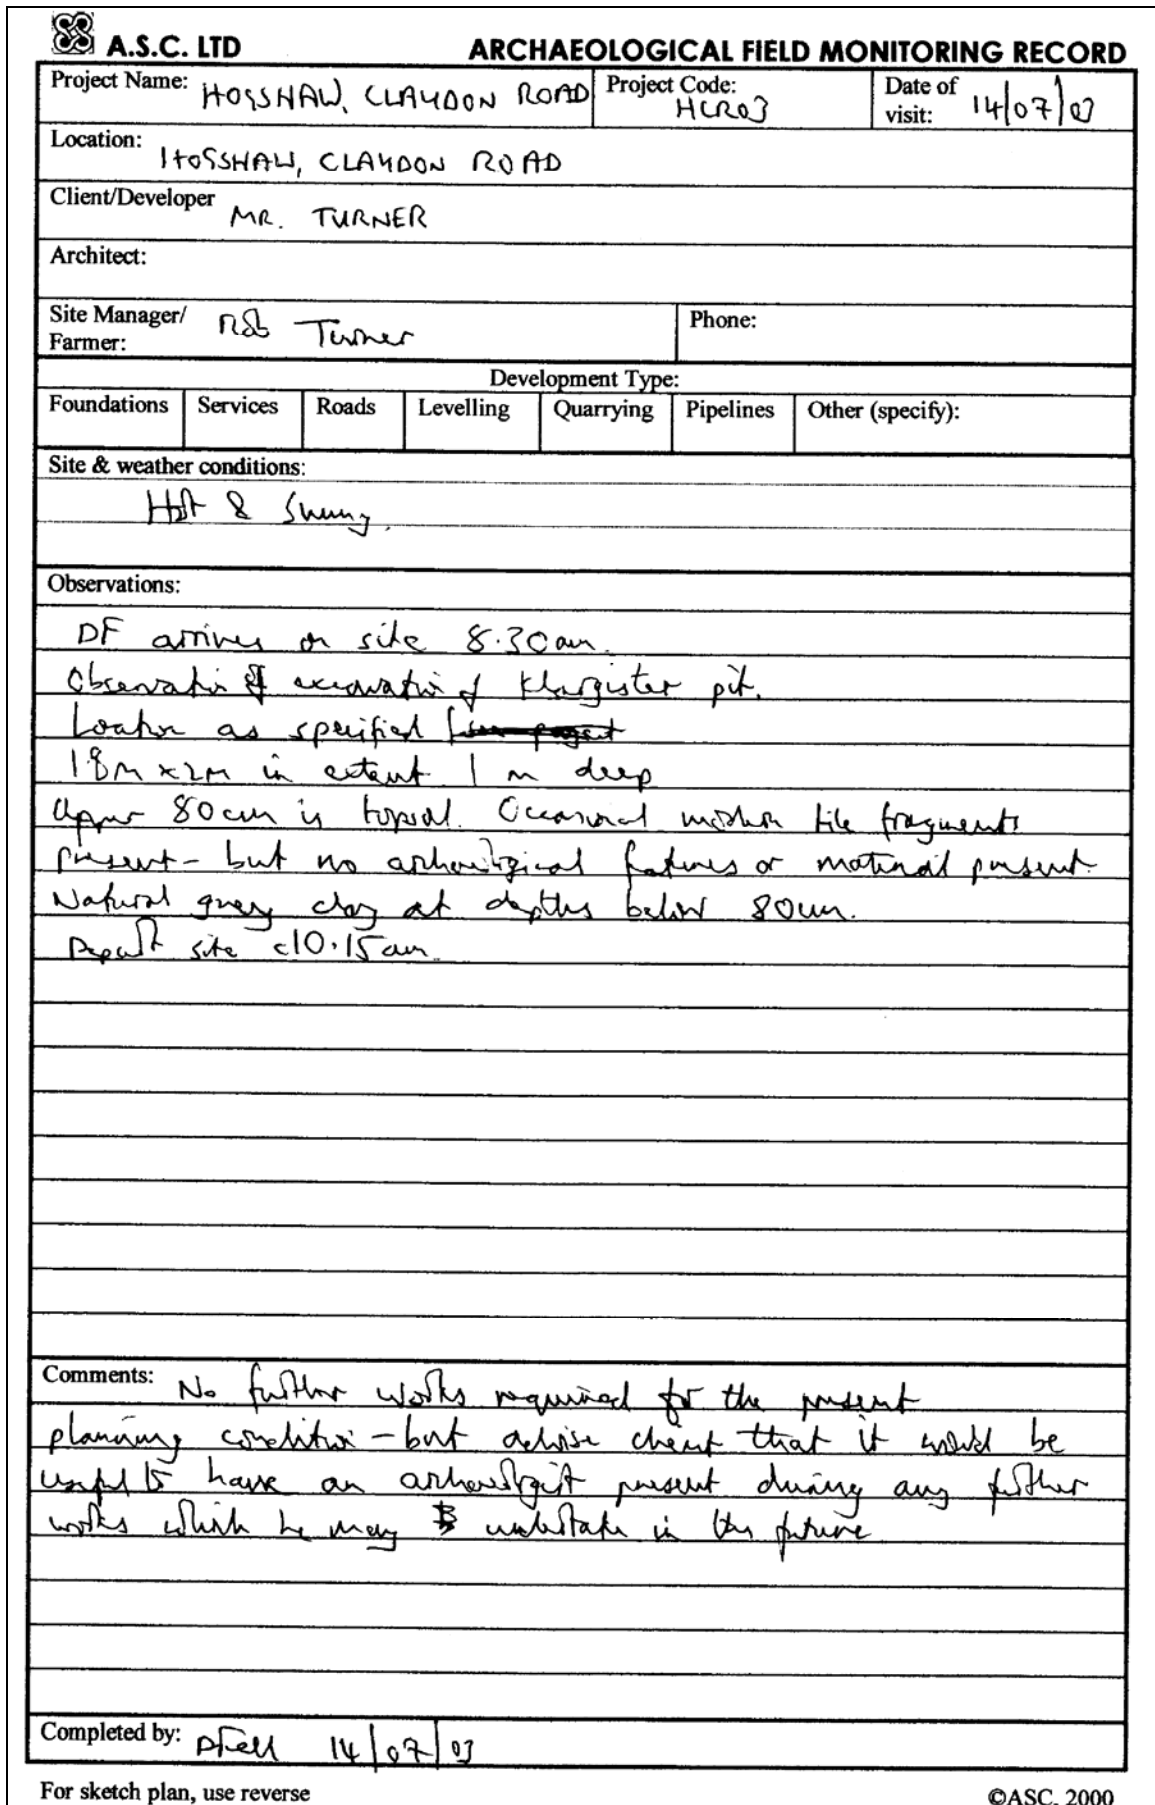 A.S.C. LTD
ARCHAEOLOGICAL FIELD MONITORING RECORD
Project Name: HOGSHAW, CLAYDON ROAD
Project Code: HCR03
Date of visit: 14/07/03
Location: HOGSHAW, CLAYDON ROAD
Client/Developer MR. TURNER
Architect:
Site Manager/ Farmer: Rob Turner
Phone:
Development Type:
Foundations Services Roads Levelling Quarrying Pipelines Other (specify):
Site & weather conditions:
Hot & Sunny.
Observations:
DF arrives on site 8.30am.
Observation of excavation of Klargister pit.
Location as specified
1.8m x 2m in extent 1m deep
Upper 80cm is topsoil. Occasional modern tile fragments
present - but no archaeological features or material present.
Natural grey clay at depths below 80cm.
Depart site c10.15am.
Comments: No further works required for the present
planning condition - but advise client that it would be
useful to have an archaeologist present during any further
works which he may undertake in the future
Completed by: DFell 14/07/03
For sketch plan, use reverse
©ASC, 2000